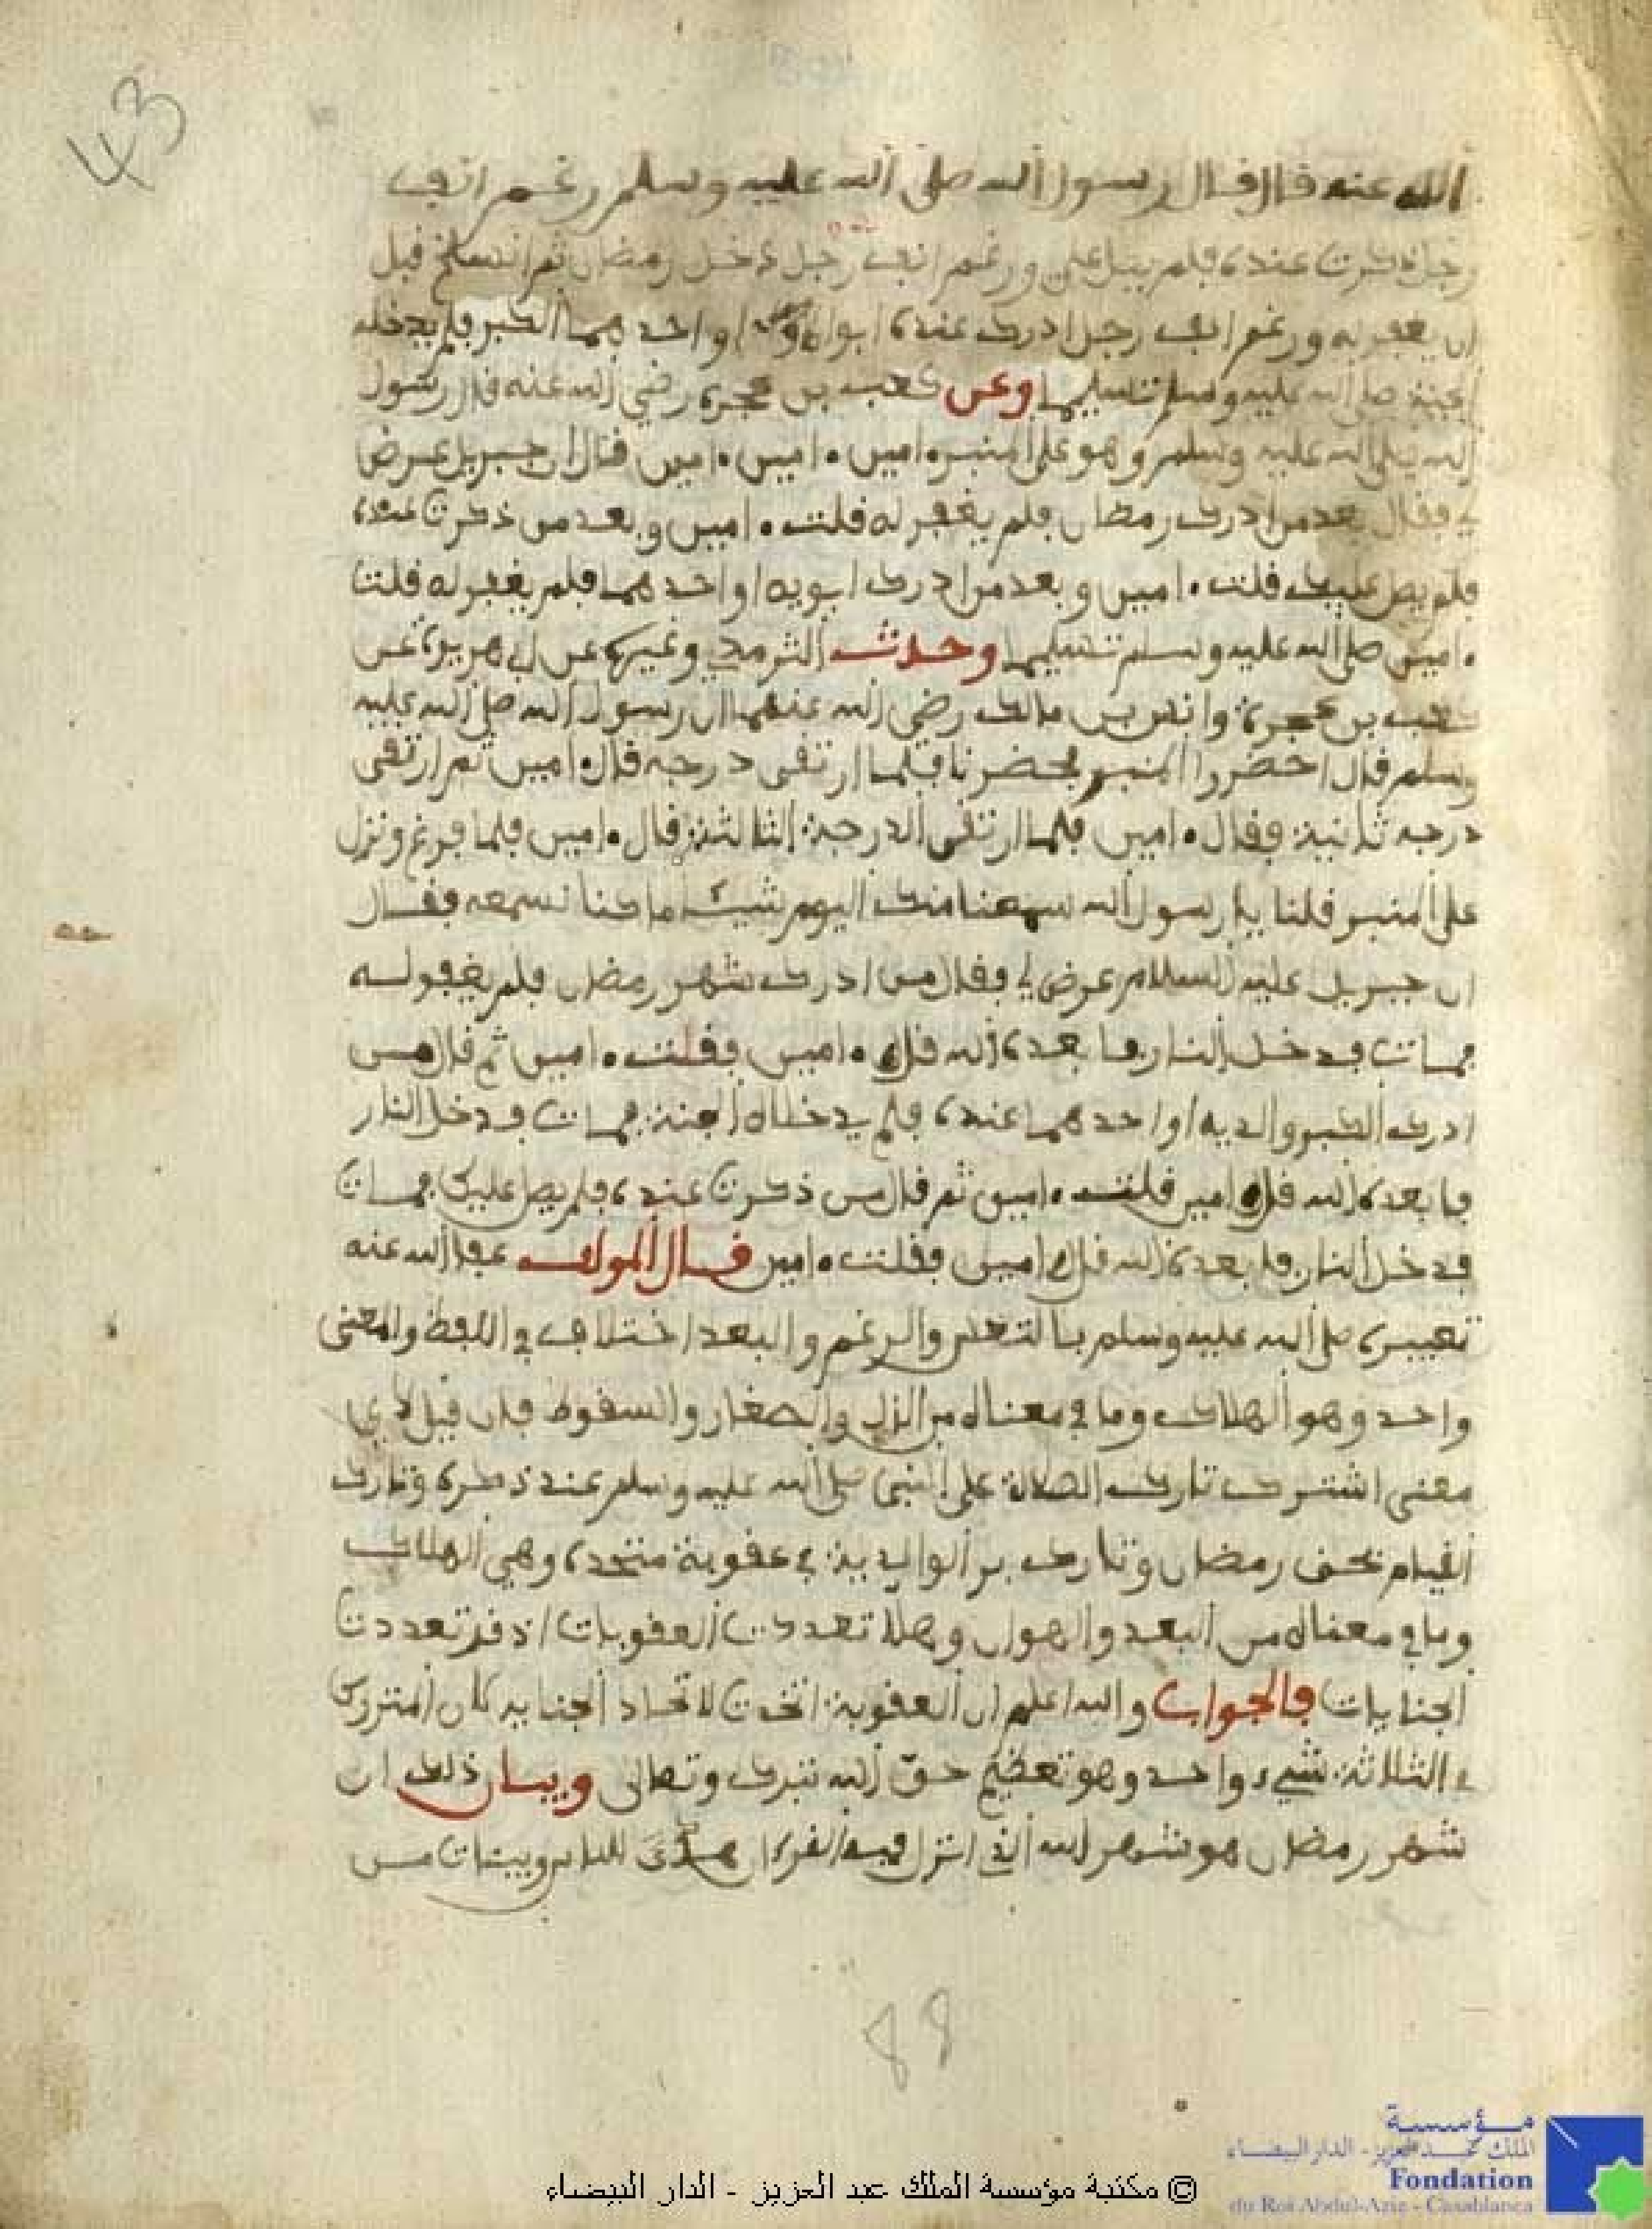 43
الله عنه قال قال رسول الله صلى الله عليه وسلم رغم انف
رجل ذكرت عنده فلم يصل علي ورغم انف رجل دخل رمضان ثم انسلخ قبل
ان يغفر له ورغم انف رجل ادرك عنده ابواه او احدهما الكبر فلم يدخله
الجنة صلى الله عليه وسلم تسليما وعن كعب بن عجرة رضي الله عنه قال رسول
الله صلى الله عليه وسلم وهو على المنبر ءامين ءامين ءامين فقال ان جبريل عرض
لي فقال بعد من ادرك رمضان فلم يغفر له فلت ءامين وبعد من ذكرت عنده
فلم يصل عليك فلت ءامين وبعد من ادرك ابويه او احدهما فلم يغفر له فلت
ءامين صلى الله عليه وسلم تسليما وحدث الترمدي وغيره عن ابي هريرة عن
كعب بن عجرة وانس بن مالك رضي الله عنهما ان رسول الله صلى الله عليه
وسلم قال احضروا المنبر فحضرنا فلما ارتقى درجه قال ءامين ثم ارتقى
درجه ثانية فقال ءامين فلما ارتقى الدرجة الثالثة قال ءامين فلما فرغ ونزل
على المنبر فلنا يا رسول الله سمعنا منك اليوم شيئا ما كنا نسمعه فقال
ان جبريل عليه السلام عرض لي فقال من ادرك شهر رمضان فلم يغفر له
فمات فدخل النار فابعده الله قل ءامين فقلت ءامين ثم قال من
ادرك الكبر والديه او احدهما عنده فلم يدخلاه الجنة فمات فدخل النار
فابعده الله قل ءامين فلت ءامين ثم قال من ذكرت عنده فلم يصل عليك فمات
فدخل النار فابعده الله قل ءامين فقلت ءامين قال المولف عفا الله عنه
تعبيره صلى الله عليه وسلم بالتعس والرغم والبعد اختلاف في اللفظ والمعنى
واحد وهو الهلاك وما في معناه من الذل والصغار والسقوط فان قيل لاي
معنى اشترك تارك الصلاة على النبي صلى الله عليه وسلم عند ذكره وتارك
القيام بحق رمضان وتارك بر الوالدين في عقوبة متحدة وهي الهلاك
وما في معناه من البعد والهوان وهلا تعددت العقوبات اذ قد تعددت
الجنايات فالجواب والله اعلم ان العقوبة اتحدت لاتحاد الجنايه لان المتروك
في الثلاثة شيء واحد وهو تعظيم حق الله تبرك وتعالى وبيان ذلك ان
شهر رمضان هو شهر الله الذي انزل فيه القرءان هدى للناس وبينات من
88
© مكتبة مؤسسة الملك عبد العزيز - الدار البيضاء
مؤسسة
الملك عبد العزيز - الدار البيضاء
Fondation
du Roi Abdul-Aziz - Casablanca